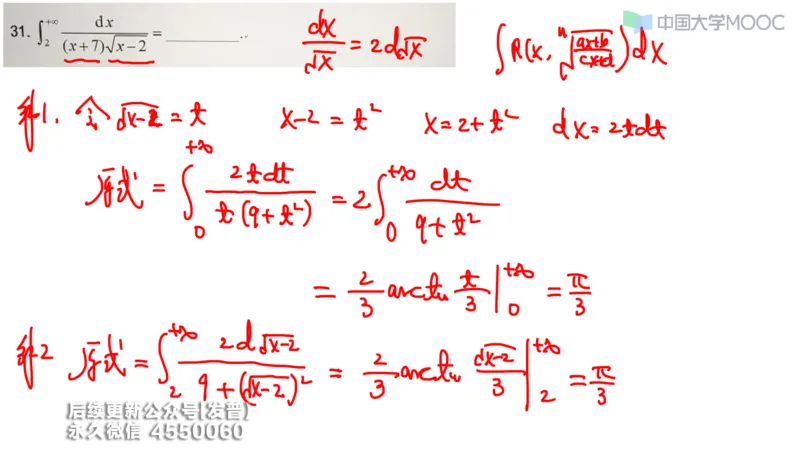 中国大学MOOC
31. ∫₂^{+∞} dx / ((x+7)√(x−2)) = ________.
dx/√x = 2d√x
∫R(x, ⁿ√((ax+b)/(cx+d)))dx
解1. 令 √(x−2) = t  x−2 = t²  x = 2+t²  dx = 2tdt
原式 = ∫₀^{+∞} 2tdt / (t(9+t²)) = 2∫₀^{+∞} dt / (9+t²)
= 2/3 arctan t/3 |₀^{+∞} = π/3
解2 原式 = ∫₂^{+∞} 2d√(x−2) / (9+(√(x−2))²) = 2/3 arctan √(x−2)/3 |₂^{+∞} = π/3
后续更新公众号[发普]
永久微信 4550060